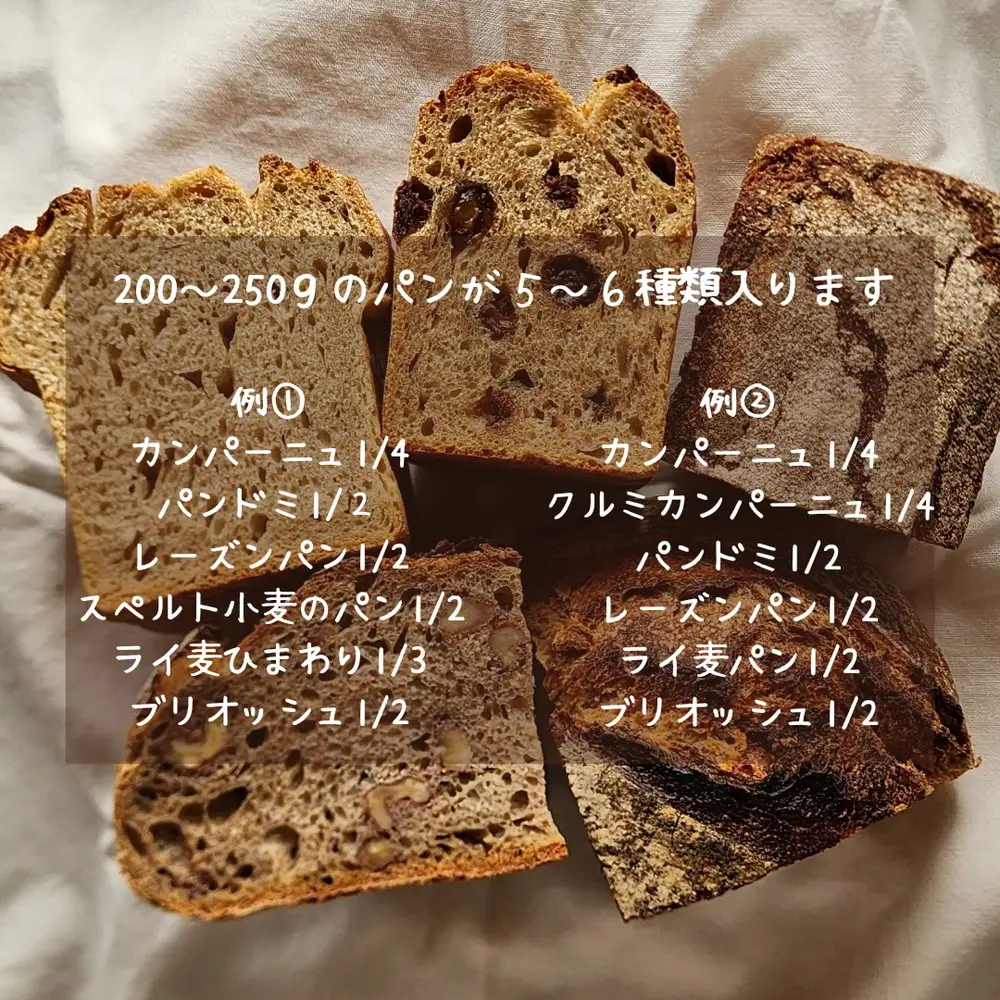 200〜250gのパンが5〜6種類入ります
例①
カンパーニュ1/4
パンドミ1/2
レーズンパン1/2
スペルト小麦のパン1/2
ライ麦ひまわり1/3
ブリオッシュ1/2
例②
カンパーニュ1/4
クルミカンパーニュ1/4
パンドミ1/2
レーズンパン1/2
ライ麦パン1/2
ブリオッシュ1/2